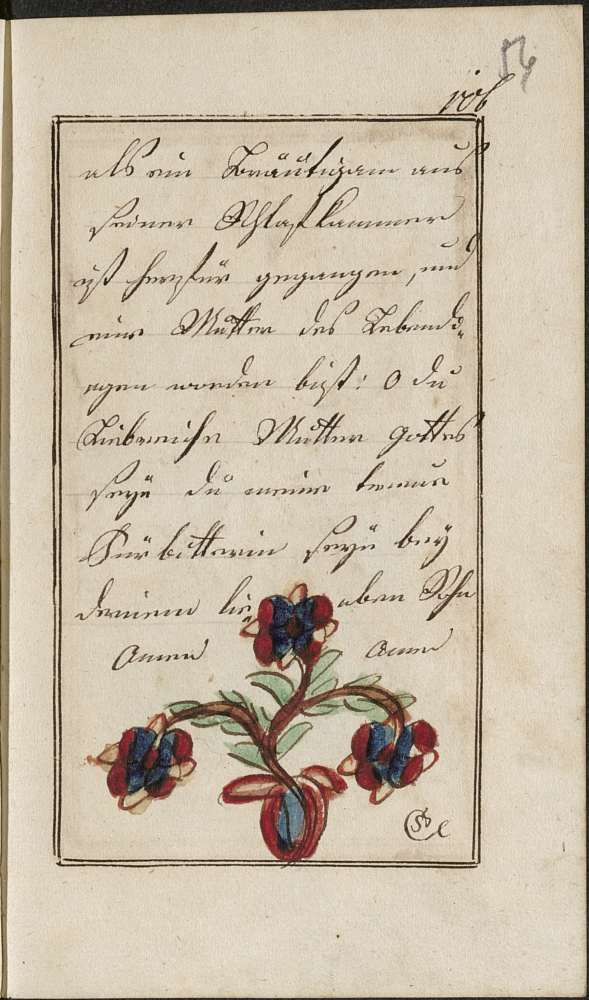 56
106
als ein Bräutigam aus
seiner Schlafkammer
ist herfür gegangen, und
eine Mutter des Lebendi„
egen worden bist: O du
Liebreiche Mutter gottes
seyü du meine
Fürbitterin seyü bey
deinem lie eben Sohn
Amen Amen